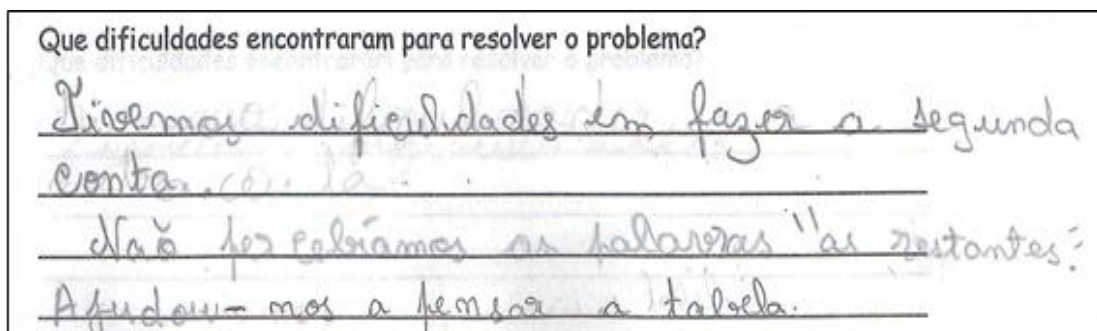 Que dificuldades encontraram para resolver o problema?
Tivemos dificuldades em fazer a segunda
conta.
Não percebíamos as palavras "as restantes".
Ajudou-nos a pensar a tabela.